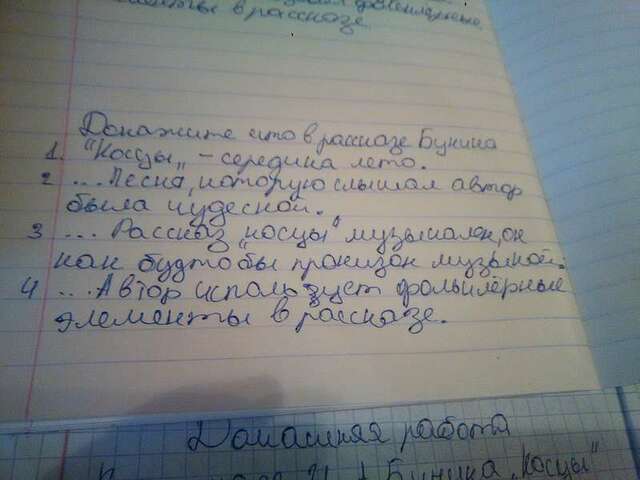 элементы в рассказе
Докажите что в рассказе Бунина
1. "Косцы„ - середина лето.
2 ... Песня, которую слышал автор
была чудесной.
3 ... Рассказ „косцы" музыкален, он
как будто бы пронизан музыкой.
4 ... Автор использует фольклёрные
элементы в рассказе.
Домашняя работа
Бунина „Косцы"